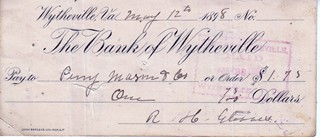 Wytheville, Va. May 12th 1898 No.
The Bank of Wytheville
Pay to Perry Mason & Co or Order $1.75
One 75/100 Dollars
R. H.